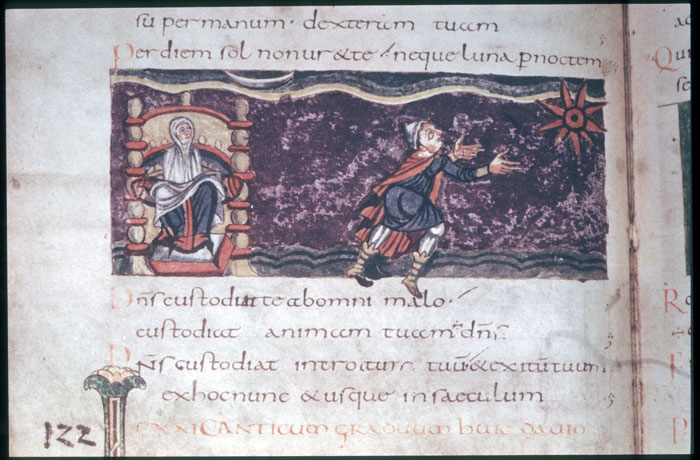 su per manum · dexteram tuam
Per diem sol non ur&te · neque luna p noctem
Dñs custodit te ab omni malo ·
custodiat animam tuam dñs
Dñs custodiat introitum tuū & exitū tuum
ex hoc nunc & usque in saeculum
CXXI CANTICUM GRADUUM HUIC DAVID
122